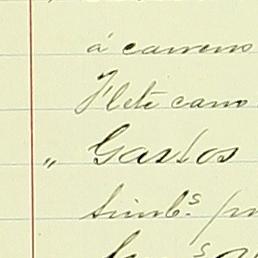 á carreros
Flete carro
„ Gastos
timb.s